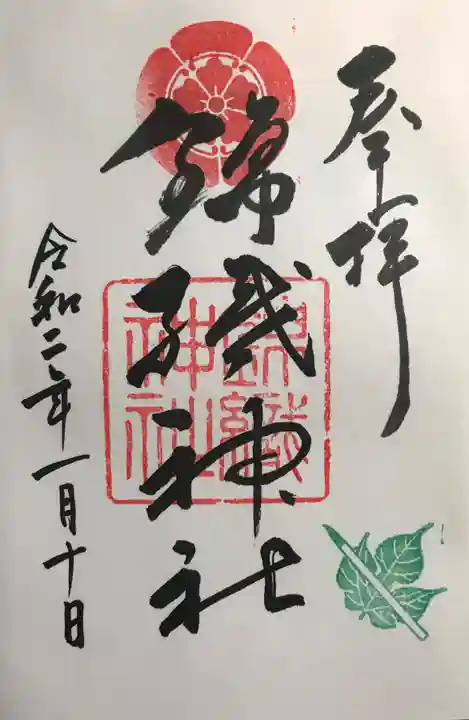 奉拝
錦織神社
錦織神社
令和二年一月十日